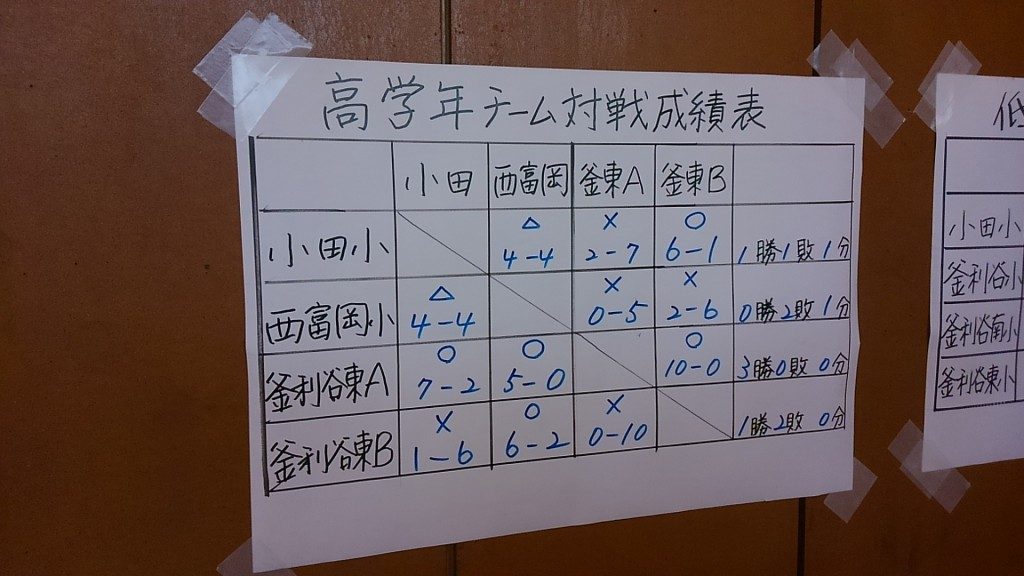 高学年チーム対戦成績表
小田 西富岡 釜東A 釜東B
小田小 △ 4-4 × 2-7 ○ 6-1 1勝1敗1分
西富岡小 △ 4-4 × 0-5 × 2-6 0勝2敗1分
釜利谷東A ○ 7-2 ○ 5-0 ○ 10-0 3勝0敗0分
釜利谷東B × 1-6 ○ 6-2 × 0-10 1勝2敗0分
低
小田小
釜利谷小
釜利谷南小
釜利谷東小